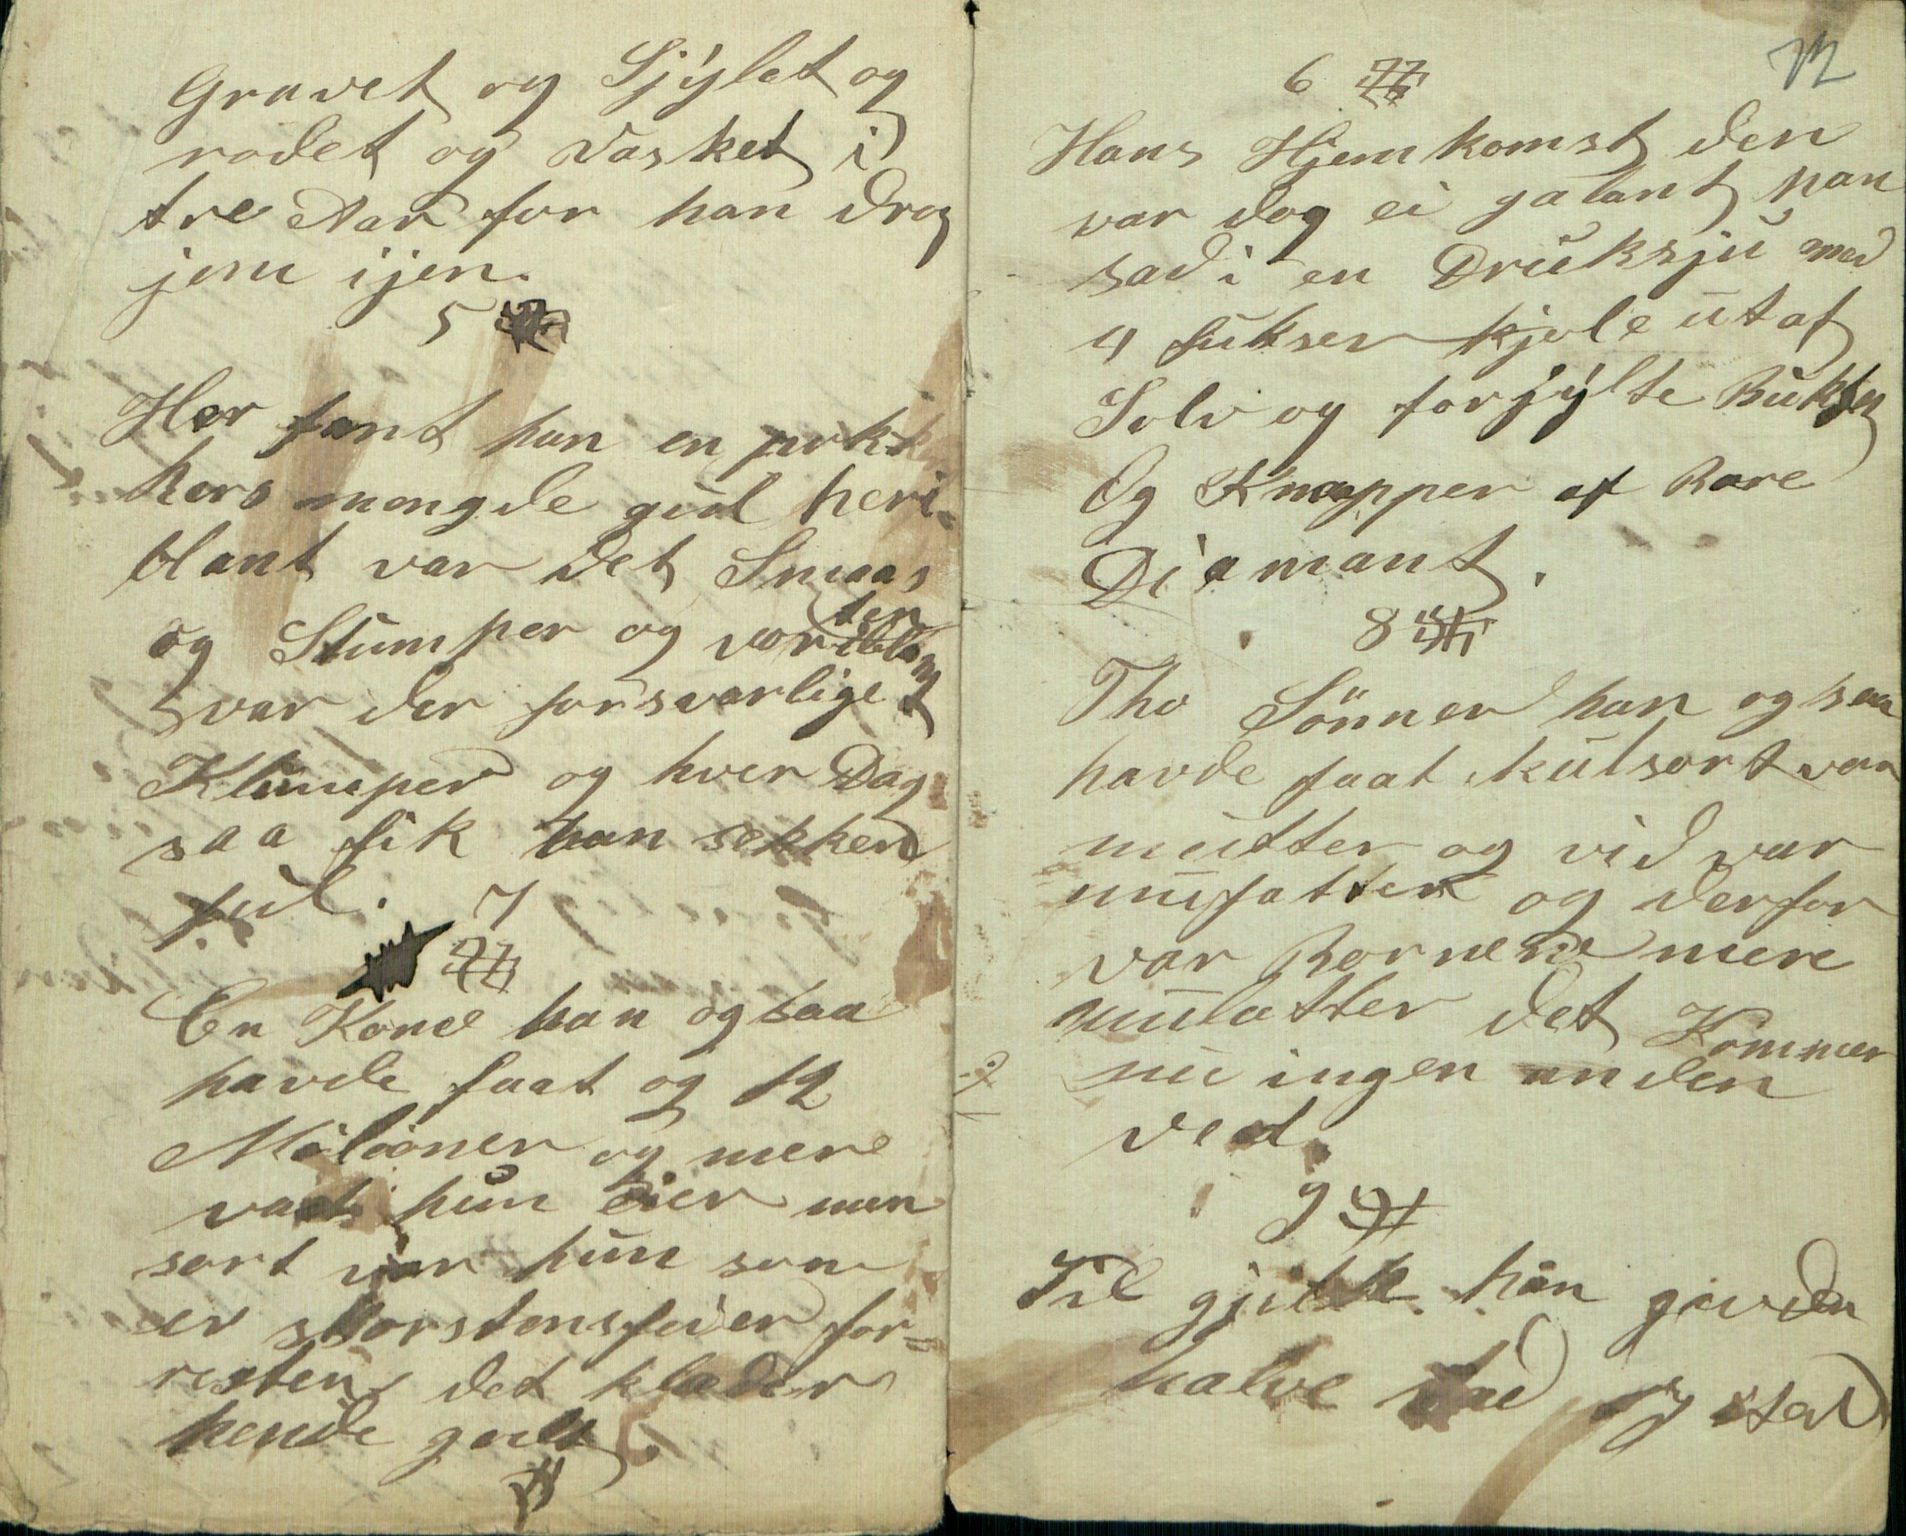 Gravet og Sjýlet og
rodet og vasket i
tre Aar for han drog
jem ijen.
5
Her fant han en
kers mengde gul heri-
blant var det Smaa
og Stumper og vor iblant
var der forsvarlige
Klumper og hver Dag
saa fik han sekken
ful.
7
En Kone han ogsaa
havde faat og 12
Milioner og mere
vart hun eier men
sort var hun som
er skorstensfeier for-
resten det klæder
hende godt.
12
6
Hans Hjemkomst den
var dog ei galant han
sad i en Druksju med
4 fukser kjole ut af
Solv og forjýlte Bukser
Og Knapper af Bare
Diamant.
8
Tho Sönner han og saa
havde faat kulsort var
mutter og vid var
mufatter og derfor
var Bornene mere
mulatter det Kommer
nu ingen anden
ved.
9
Til han giv den
halve og